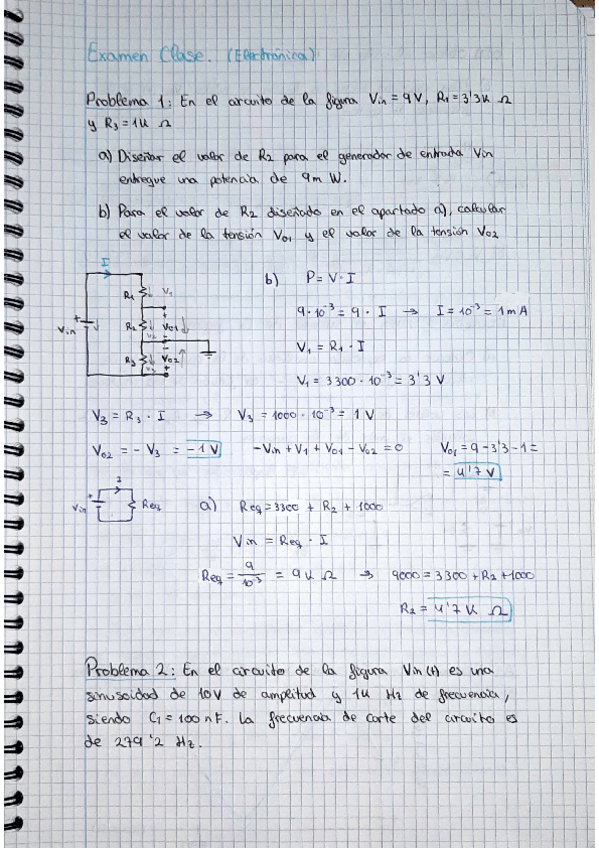 Examen Clase. (Electrónica)
Problema 1: En el circuito de la figura Vin = 9V, R1 = 3'3k Ω
y R3 = 1k Ω
a) Diseñar el valor de R2 para el generador de entrada Vin
entregue una potencia de 9m W.
b) Para el valor de R2 diseñado en el apartado a), calcular
el valor de la tensión V01 y el valor de la tensión V02
I
R1 V1
Vin + R2 + V01 -
R3 - V02 +
b) P = V · I
9·10⁻³ = 9 · I → I = 10⁻³ = 1mA
V1 = R1 · I
V1 = 3300 · 10⁻³ = 3'3 V
V3 = R3 · I → V3 = 1000 · 10⁻³ = 1 V
V02 = - V3 = -1 V -Vin + V1 + V01 - V02 = 0 V01 = 9 - 3'3 - 1 =
= 4'7 V
Vin + I Req
a) Req = 3300 + R2 + 1000
Vin = Req · I
Req = 9/10⁻³ = 9k Ω → 9000 = 3300 + R2 + 1000
R2 = 4'7 k Ω
Problema 2: En el circuito de la figura Vin(t) es una
sinusoidad de 10V de amplitud y 1k Hz de frecuencia,
siendo C1 = 100 nF. La frecuencia de corte del circuito es
de 279'2 Hz.